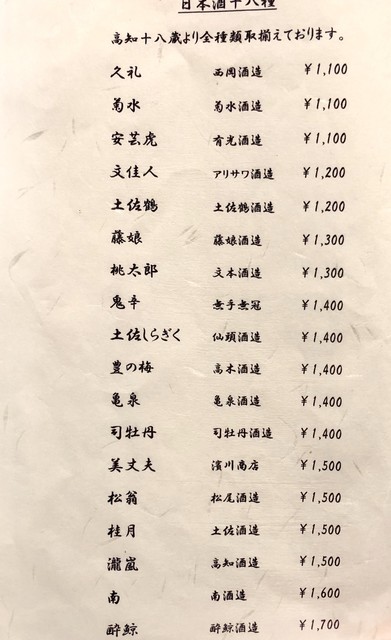 日本酒十八種
高知十八蔵より全種類取揃えております。
久礼 西岡酒造 ¥1,100
菊水 菊水酒造 ¥1,100
安芸虎 有光酒造 ¥1,100
文佳人 アリサワ酒造 ¥1,200
土佐鶴 土佐鶴酒造 ¥1,200
藤娘 藤娘酒造 ¥1,300
桃太郎 文本酒造 ¥1,300
鬼辛 無手無冠 ¥1,400
土佐しらぎく 仙頭酒造 ¥1,400
豊の梅 高木酒造 ¥1,400
亀泉 亀泉酒造 ¥1,400
司牡丹 司牡丹酒造 ¥1,400
美丈夫 濱川商店 ¥1,500
松翁 松尾酒造 ¥1,500
桂月 土佐酒造 ¥1,500
瀧嵐 高知酒造 ¥1,500
南 南酒造 ¥1,600
酔鯨 酔鯨酒造 ¥1,700